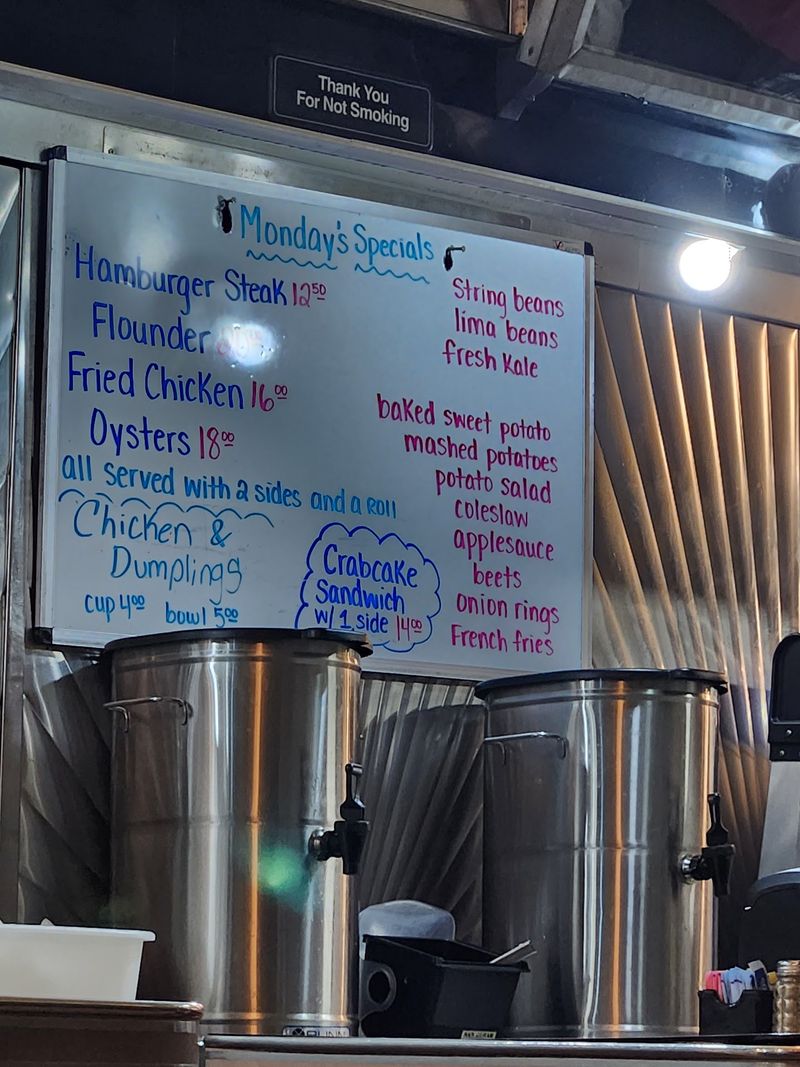 Thank You
For Not Smoking
Monday's Specials
Hamburger Steak 12 50
Flounder
Fried Chicken 16 00
Oysters 18 00
all served with 2 sides and a Roll
Chicken &
Dumplings
cup 4 00 bowl 5 00
Crabcake
Sandwich
w/ 1 side 14 00
String beans
lima beans
fresh Kale
baked sweet potato
mashed potatoes
potato salad
coleslaw
applesauce
beets
onion rings
French fries